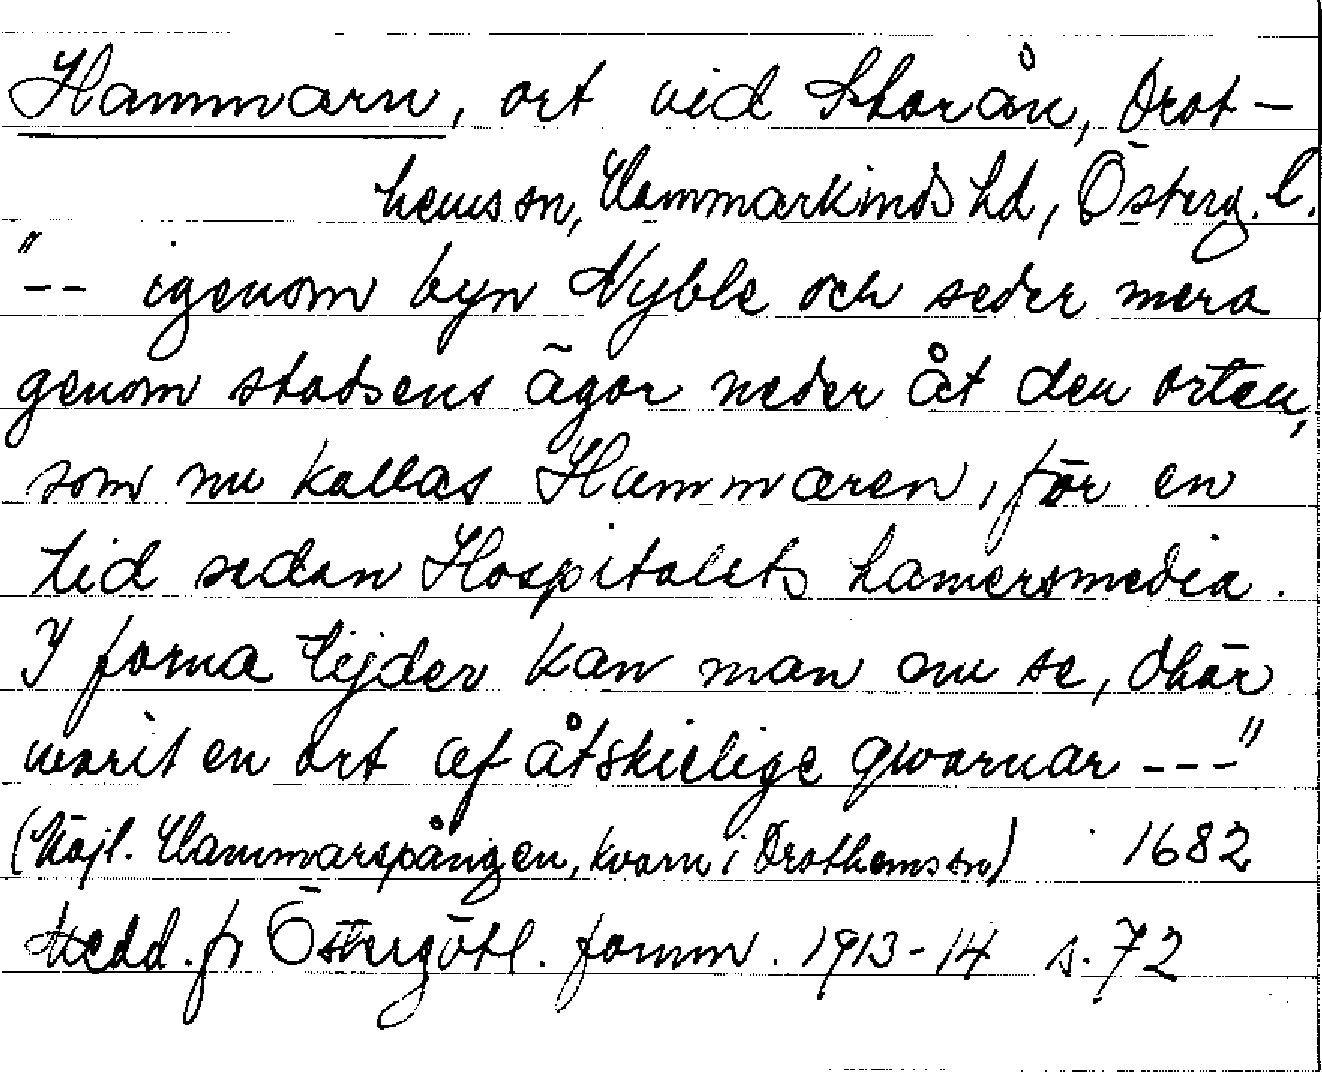 Hammarn, ort vid Storån, Drot-
hems sn, Hammarkinds hd, Österg. l.
"-- igenom byn Nyble och seder mera
genom stadsens ägor neder åt den orten,
som nu kallas Hammaren, för en
tid sedan Hospitalets hamersmedia.
I forna tijder kan man nu se, dhär
warit en ort af åtskielige qwarnar ---"
(Möjl. Hammarspången, kvarn i Drothems sn) 1682
Medd. fr Östergötl. fornm. 1913-14 s. 72